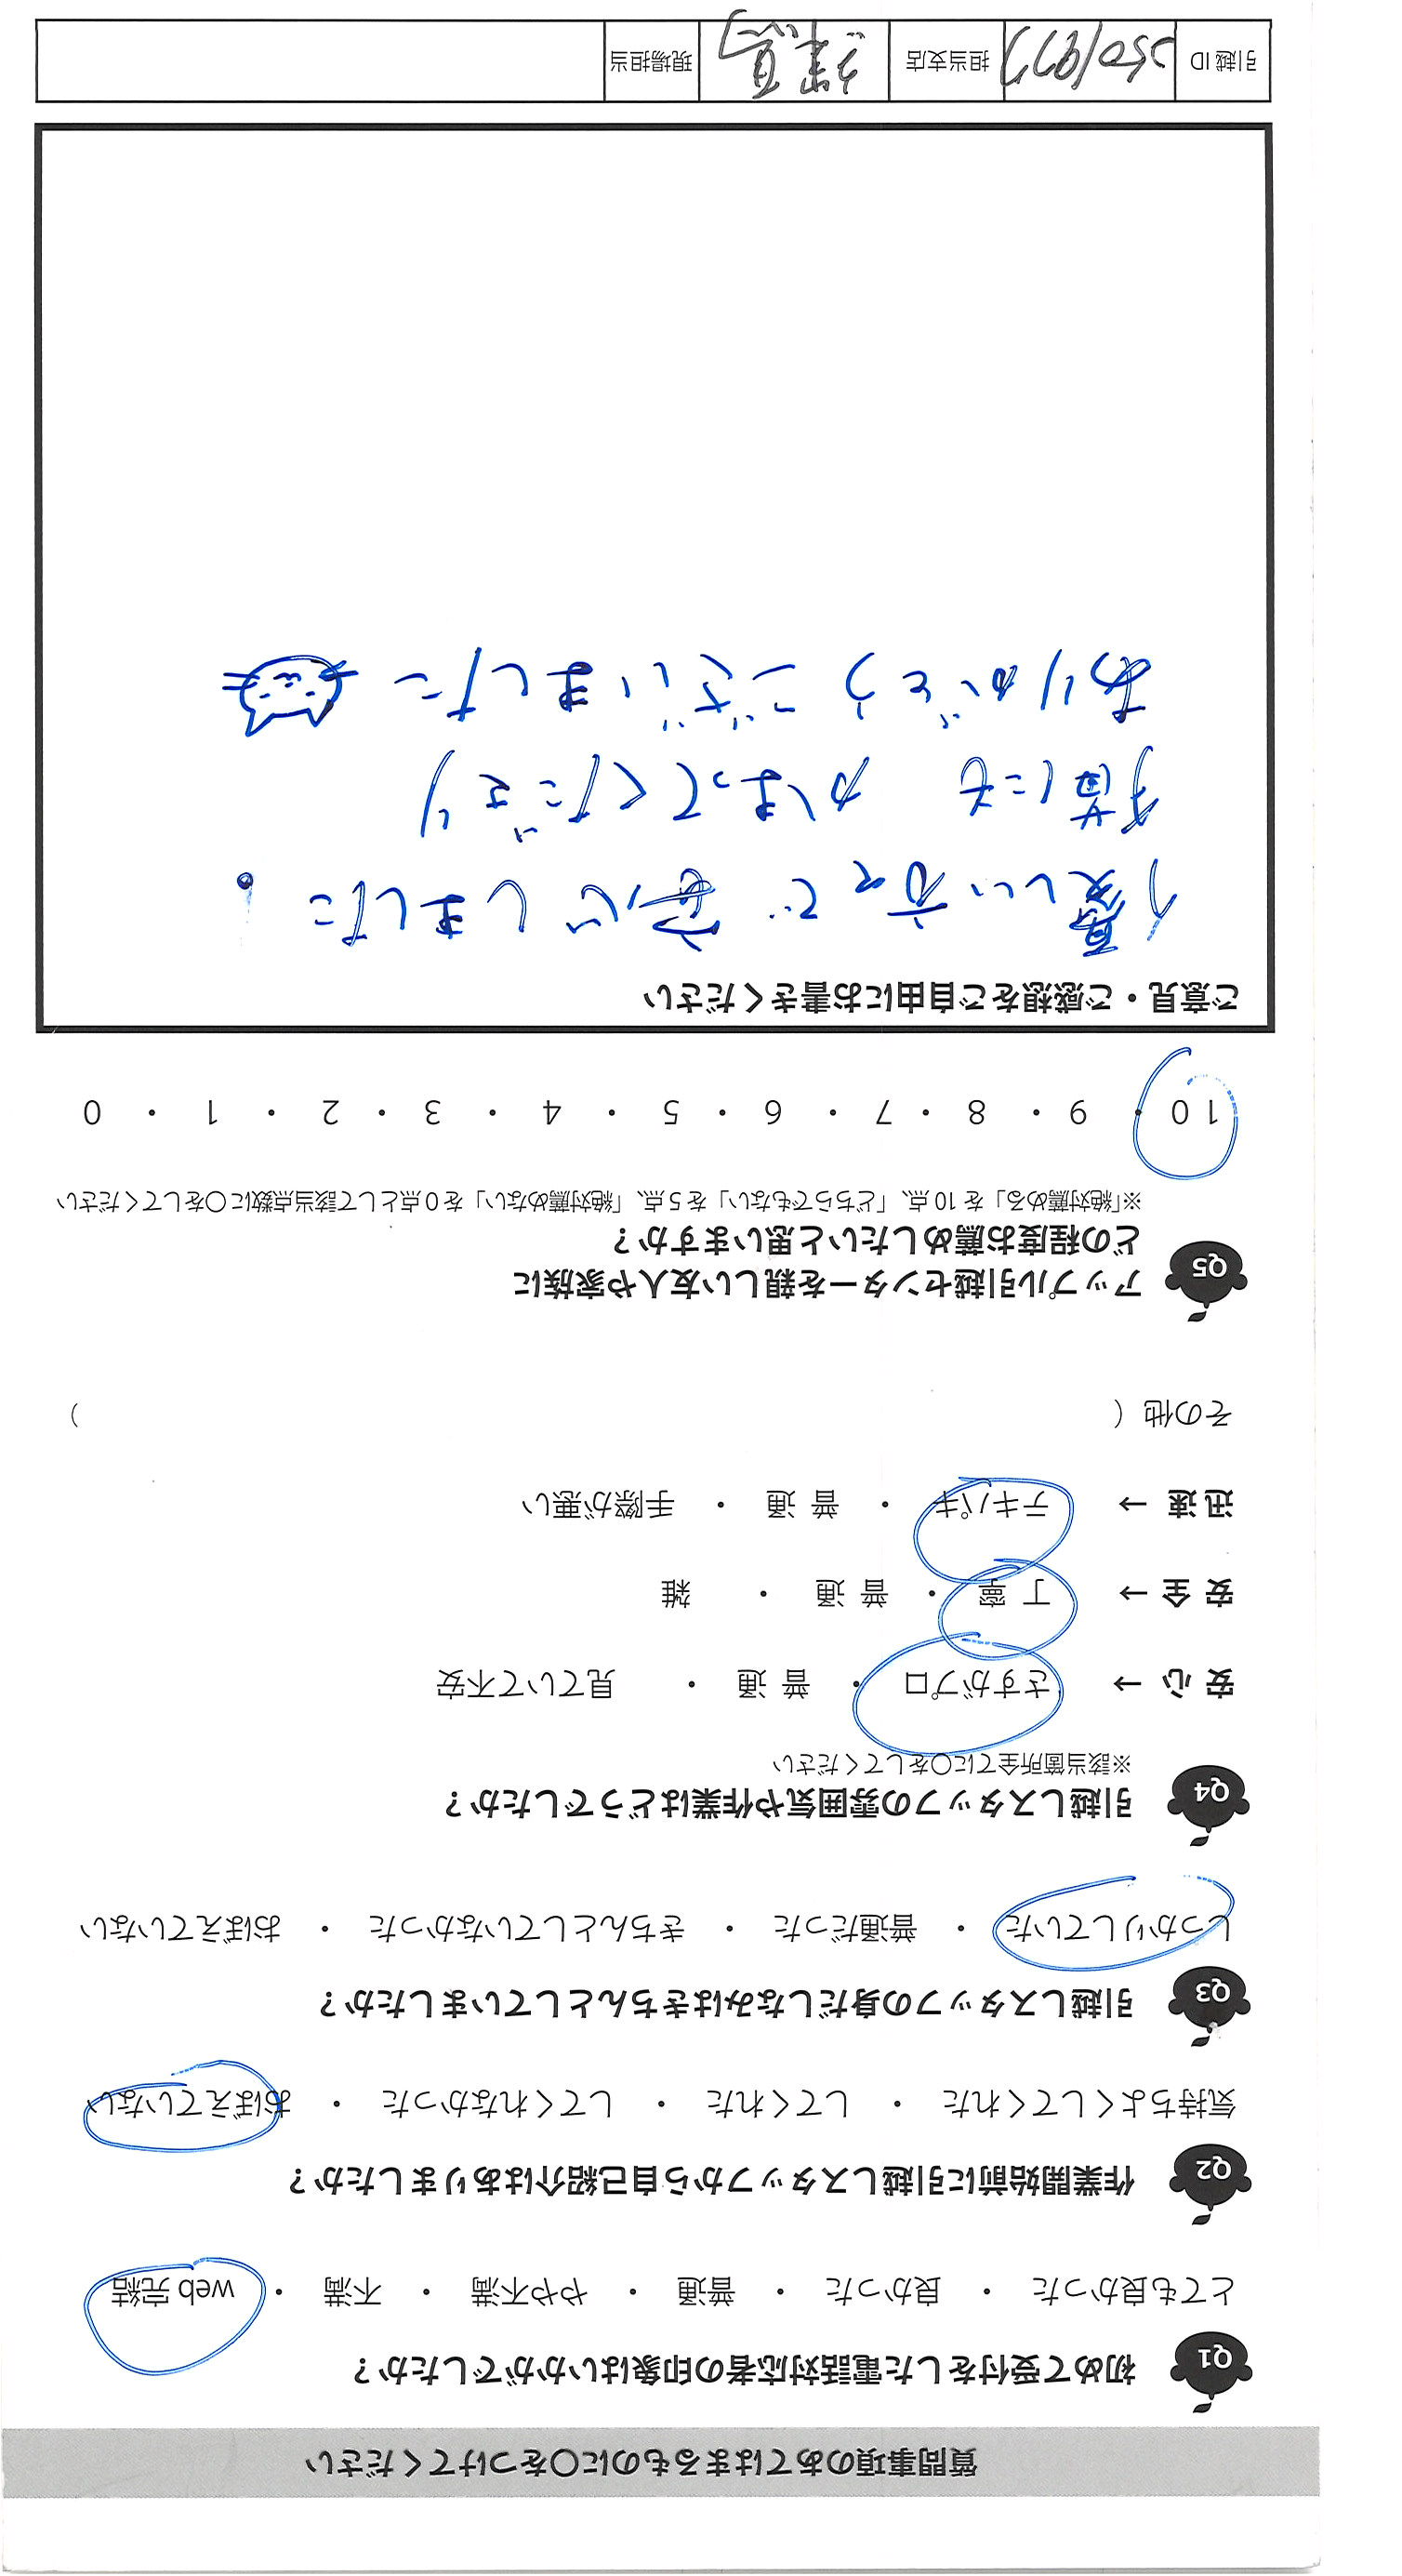 質問事項のあてはまるものに〇をつけてください
Q1 初めて受付をした電話対応者の印象はいかがでしたか？
とても良かった ・ 良かった ・ 普通 ・ やや不満 ・ 不満 ・ web 完結
Q2 作業開始前に引越しスタッフから自己紹介はありましたか？
気持ちよくしてくれた ・ してくれた ・ してくれなかった ・ おぼえていない
Q3 引越しスタッフの身だしなみはきちんとしていましたか？
しっかりしていた ・ 普通だった ・ きちんとしていなかった ・ おぼえていない
Q4 引越しスタッフの雰囲気や作業はどうでしたか？
※該当箇所全てに〇をしてください
安 心 → さすがプロ ・ 普 通 ・ 見ていて不安
安 全 → 丁 寧 ・ 普 通 ・ 雑
迅 速 → テキパキ ・ 普 通 ・ 手際が悪い
その他（ ）
Q5 アップル引越センターを親しい友人や家族に
どの程度お薦めしたいと思いますか？
※「絶対薦める」を 10 点、「どちらでもない」を 5 点、「絶対薦めない」を 0 点として該当点数に〇をしてください
10 ・ 9 ・ 8 ・ 7 ・ 6 ・ 5 ・ 4 ・ 3 ・ 2 ・ 1 ・ 0
ご意見・ご感想をご自由にお書きください
優しい方々で 安心しました。
猫にも かまってくださり
ありがとうございました
引越 ID 担当支店 現場担当